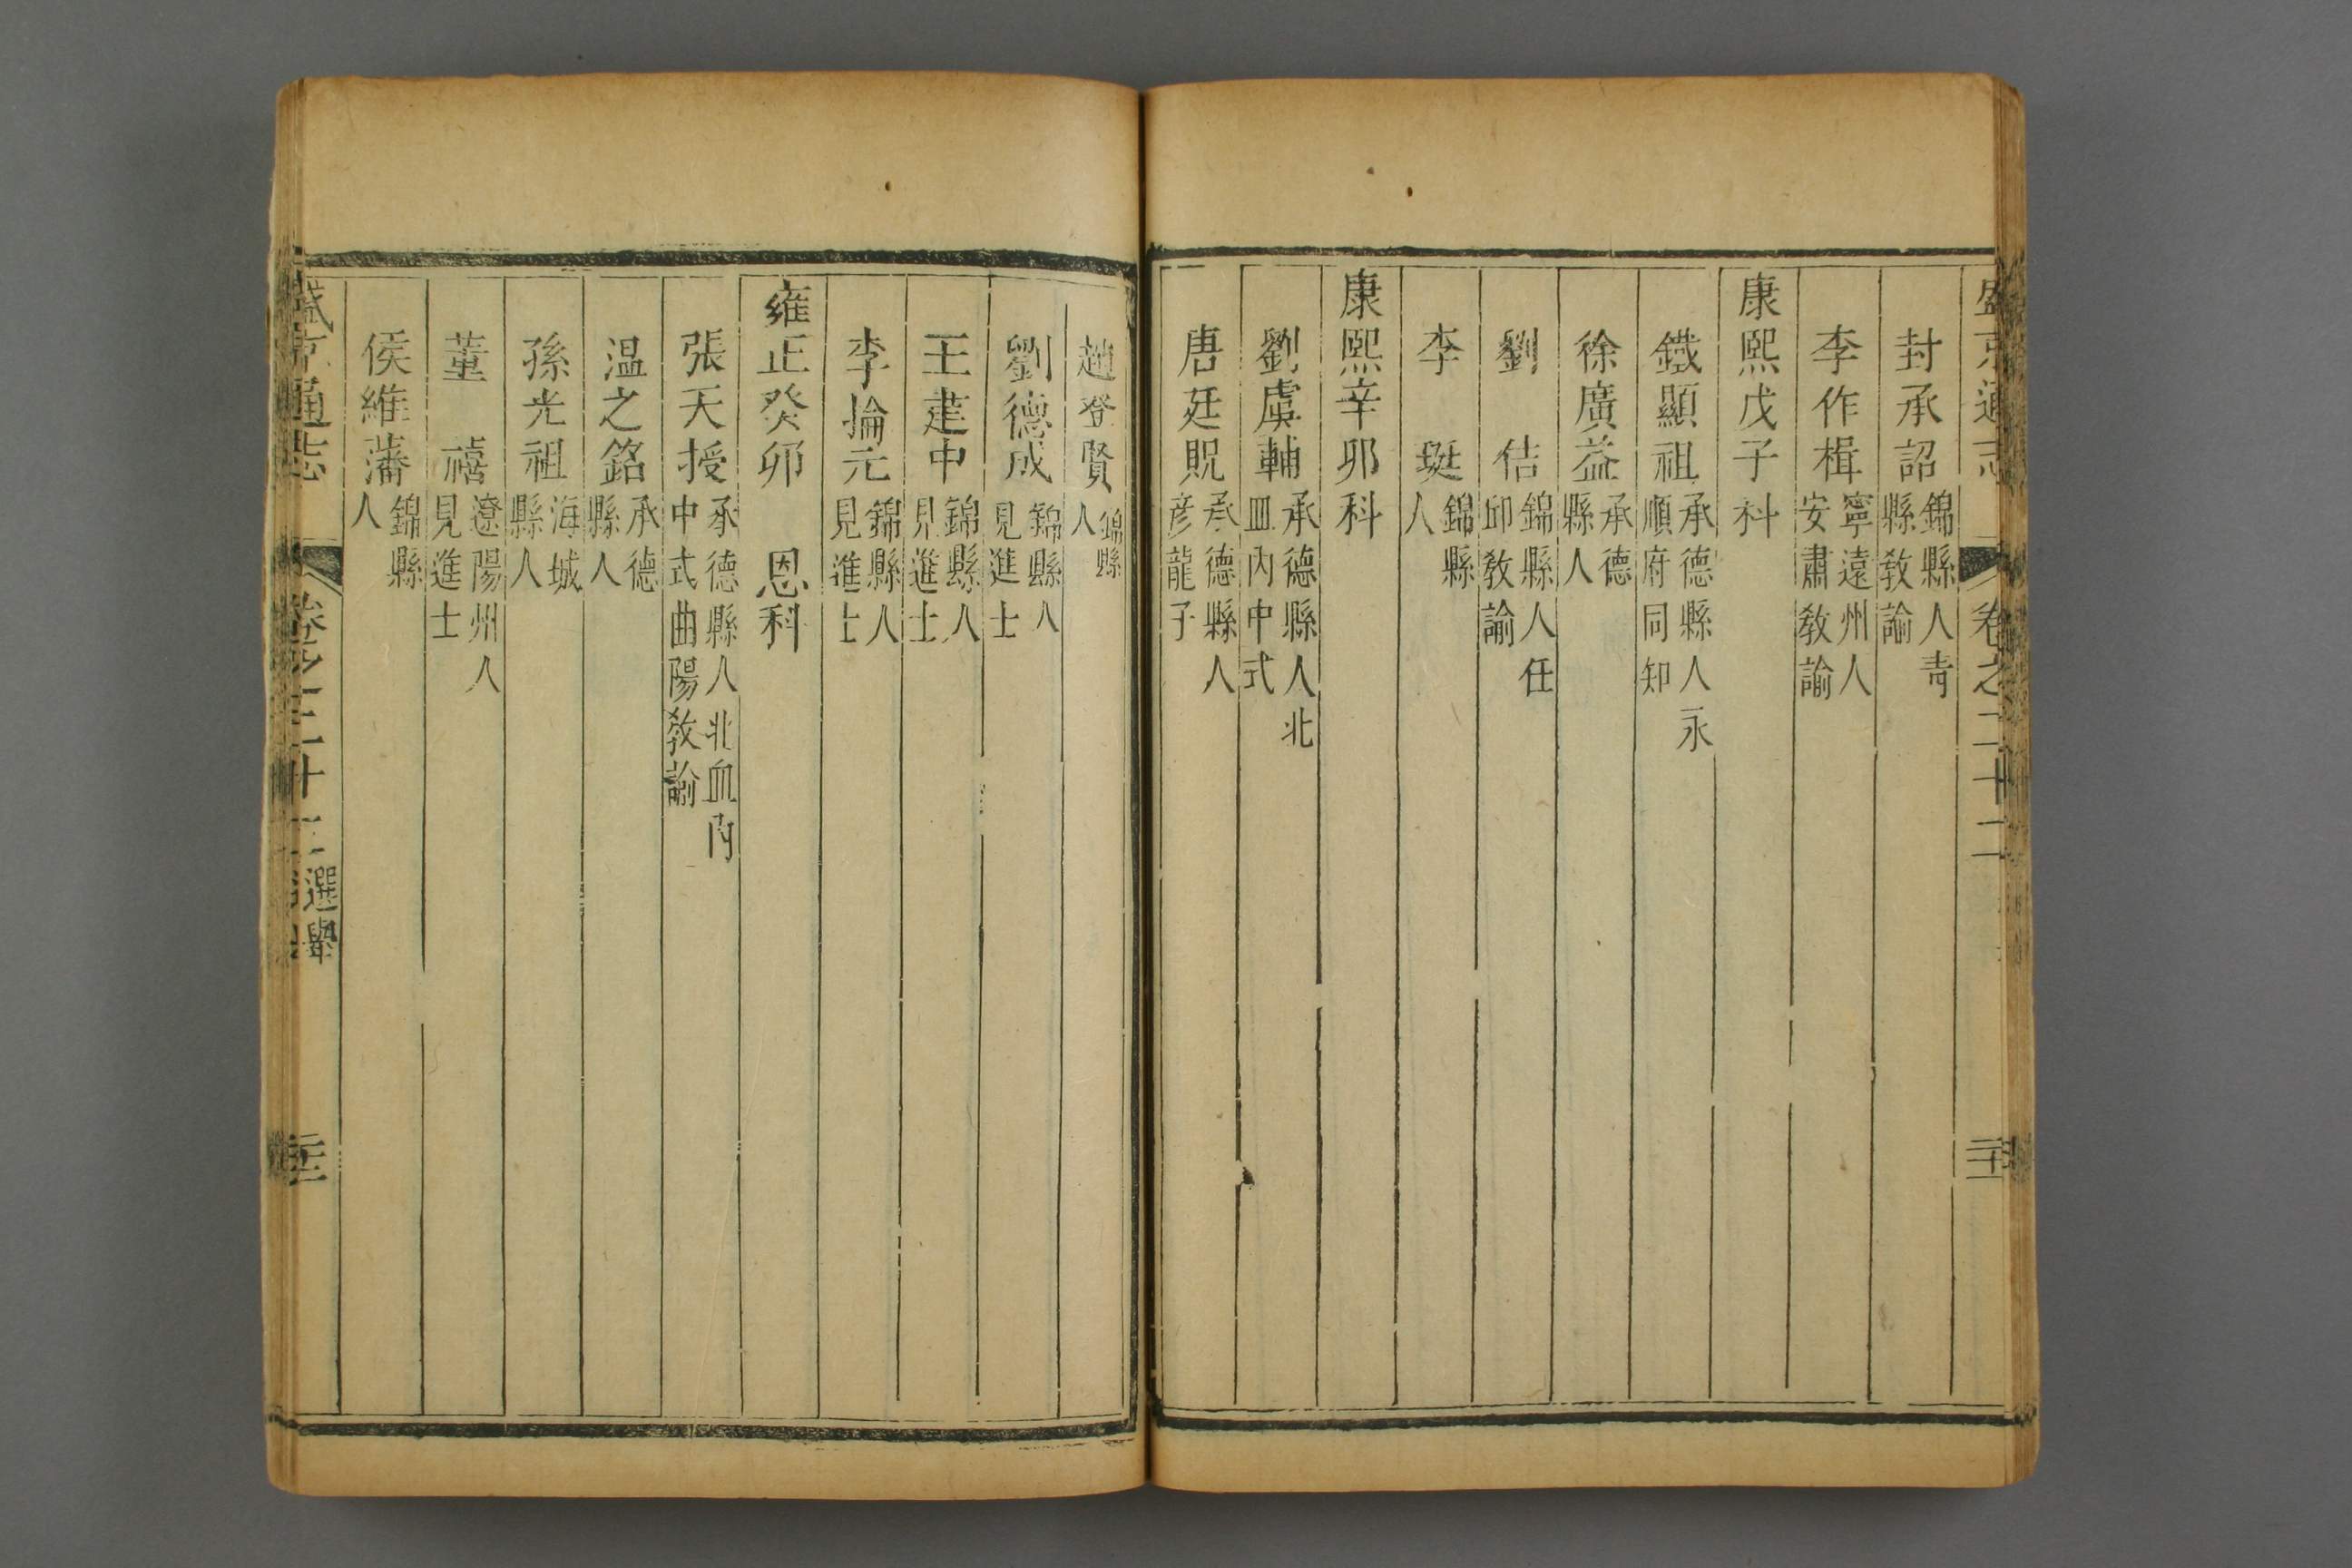 盛京通志 卷之二十二 二十
封承詔 錦縣人青縣敎諭
李作楫 寧遠州人安肅敎諭
康熙戊子科
鐵顯祖 承德縣人永順府同知
徐廣益 承德縣人
劉佶 錦縣人任邱敎諭
李珽 錦縣人
康熙辛卯科
劉虞輔 承德縣人北皿內中式
唐廷貺 承德縣人彦龍子
趙登賢 錦縣人
劉德成 錦縣人見進士
王建中 錦縣人見進士
李掄元 錦縣人見進士
雍正癸卯 恩科
張天授 承德縣人北皿內中式曲陽敎諭
温之銘 承德縣人
孫光祖 海城縣人
董禧 遼陽州人見進士
侯維藩 錦縣人
盛京通志 卷之二十二 選舉